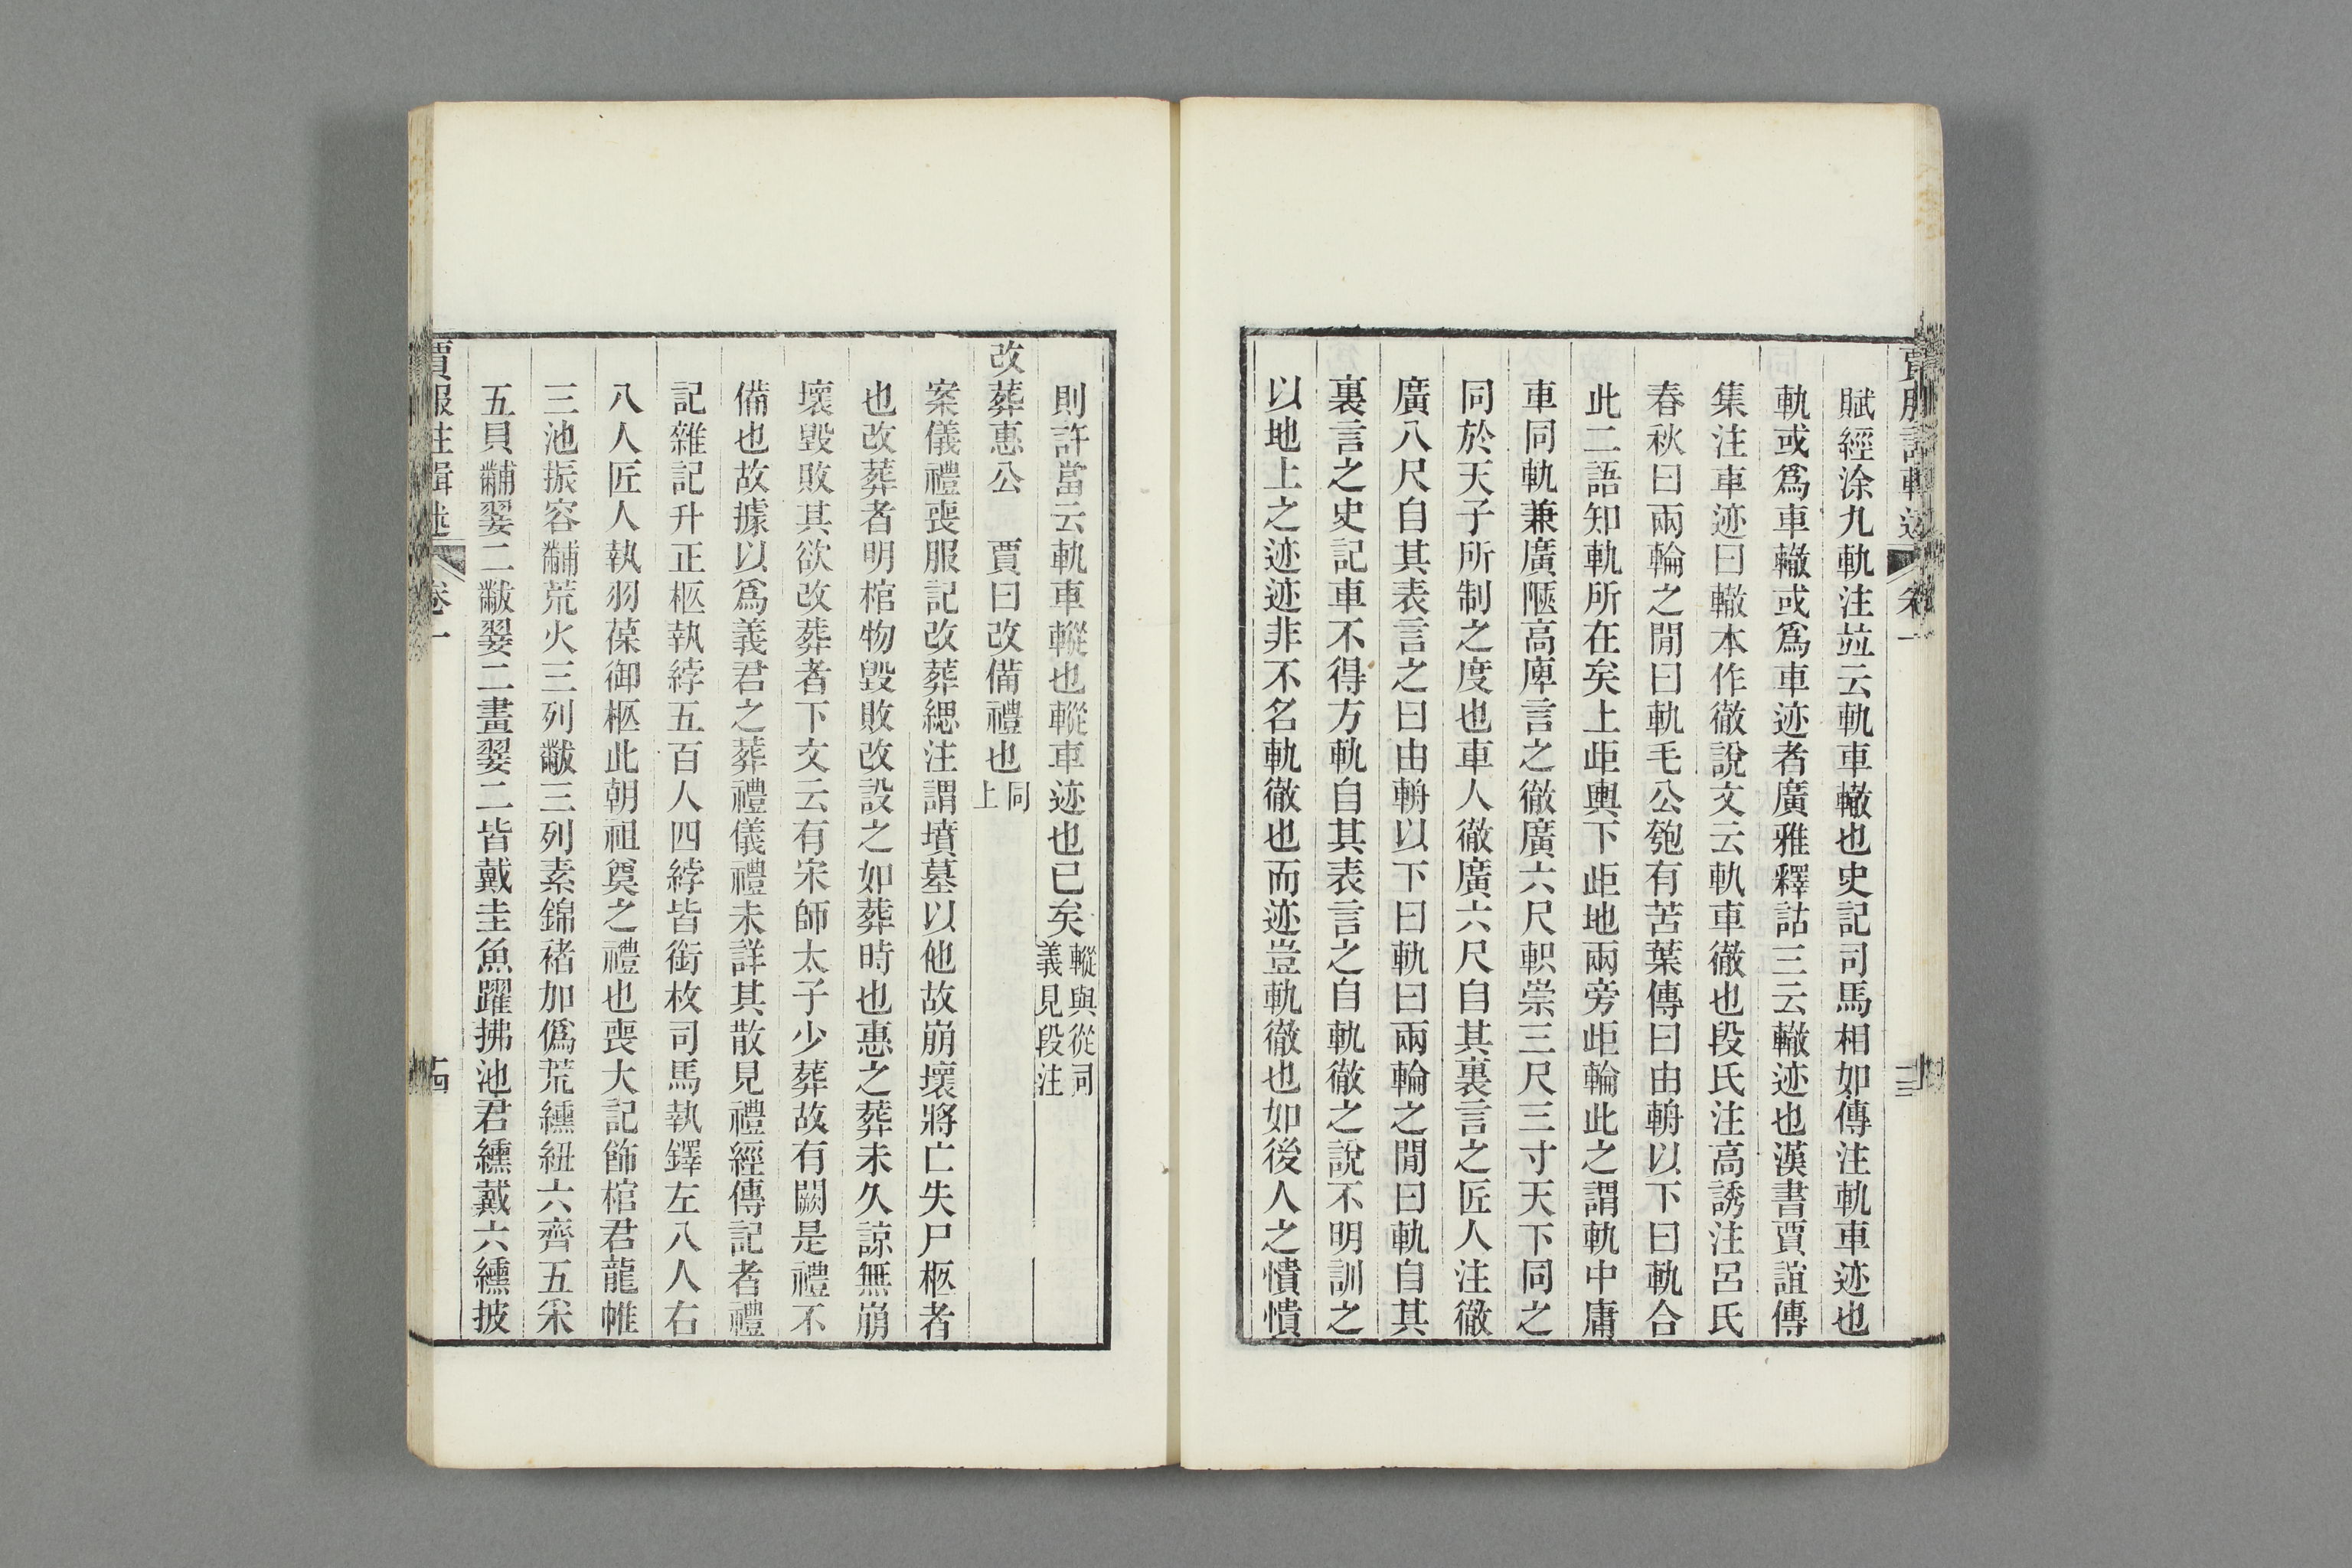 賦經涂九軌注竝云軌車轍也史記司馬相如傳注軌車迹也
軌或爲車轍或爲車迹者廣雅釋詁三云轍迹也漢書賈誼傳
集注車迹曰轍本作徹說文云軌車徹也段氏注高誘注呂氏
春秋曰兩輪之閒曰軌毛公匏有苦葉傳曰由輈以下曰軌合
此二語知軌所在矣上歫輿下歫地兩旁歫輪此之謂軌中庸
車同軌兼廣陿高庳言之徹廣六尺軹崇三尺三寸天下同之
同於天子所制之度也車人徹廣六尺自其裏言之匠人注徹
廣八尺自其表言之曰由輈以下曰軌曰兩輪之閒曰軌自其
裏言之史記車不得方軌自其表言之自軌徹之說不明訓之
以地上之迹迹非不名軌徹也而迹豈軌徹也如後人之憒憒
則許當云軌車轍也轍車迹也已矣
改葬惠公 賈曰改備禮也同上
案儀禮喪服記改葬緦注謂墳墓以他故崩壞將亡失尸柩者
也改葬者明棺物毀敗改設之如葬時也惠之葬未久諒無崩
壞毀敗其欲改葬者下文云有宋師太子少葬故有闕是禮不
備也故據以爲義君之葬禮儀禮未詳其散見禮經傳記者禮
記雜記升正柩執綍五百人四綍皆銜枚司馬執鐸左八人右
八人匠人執羽葆御柩此朝祖奠之禮也喪大記飾棺君龍帷
三池振容黼荒火三列黻三列素錦褚加僞荒纁紐六齊五采
五貝黼翣二黻翣二畫翣二皆戴圭魚躍拂池君纁戴六纁披
卷一